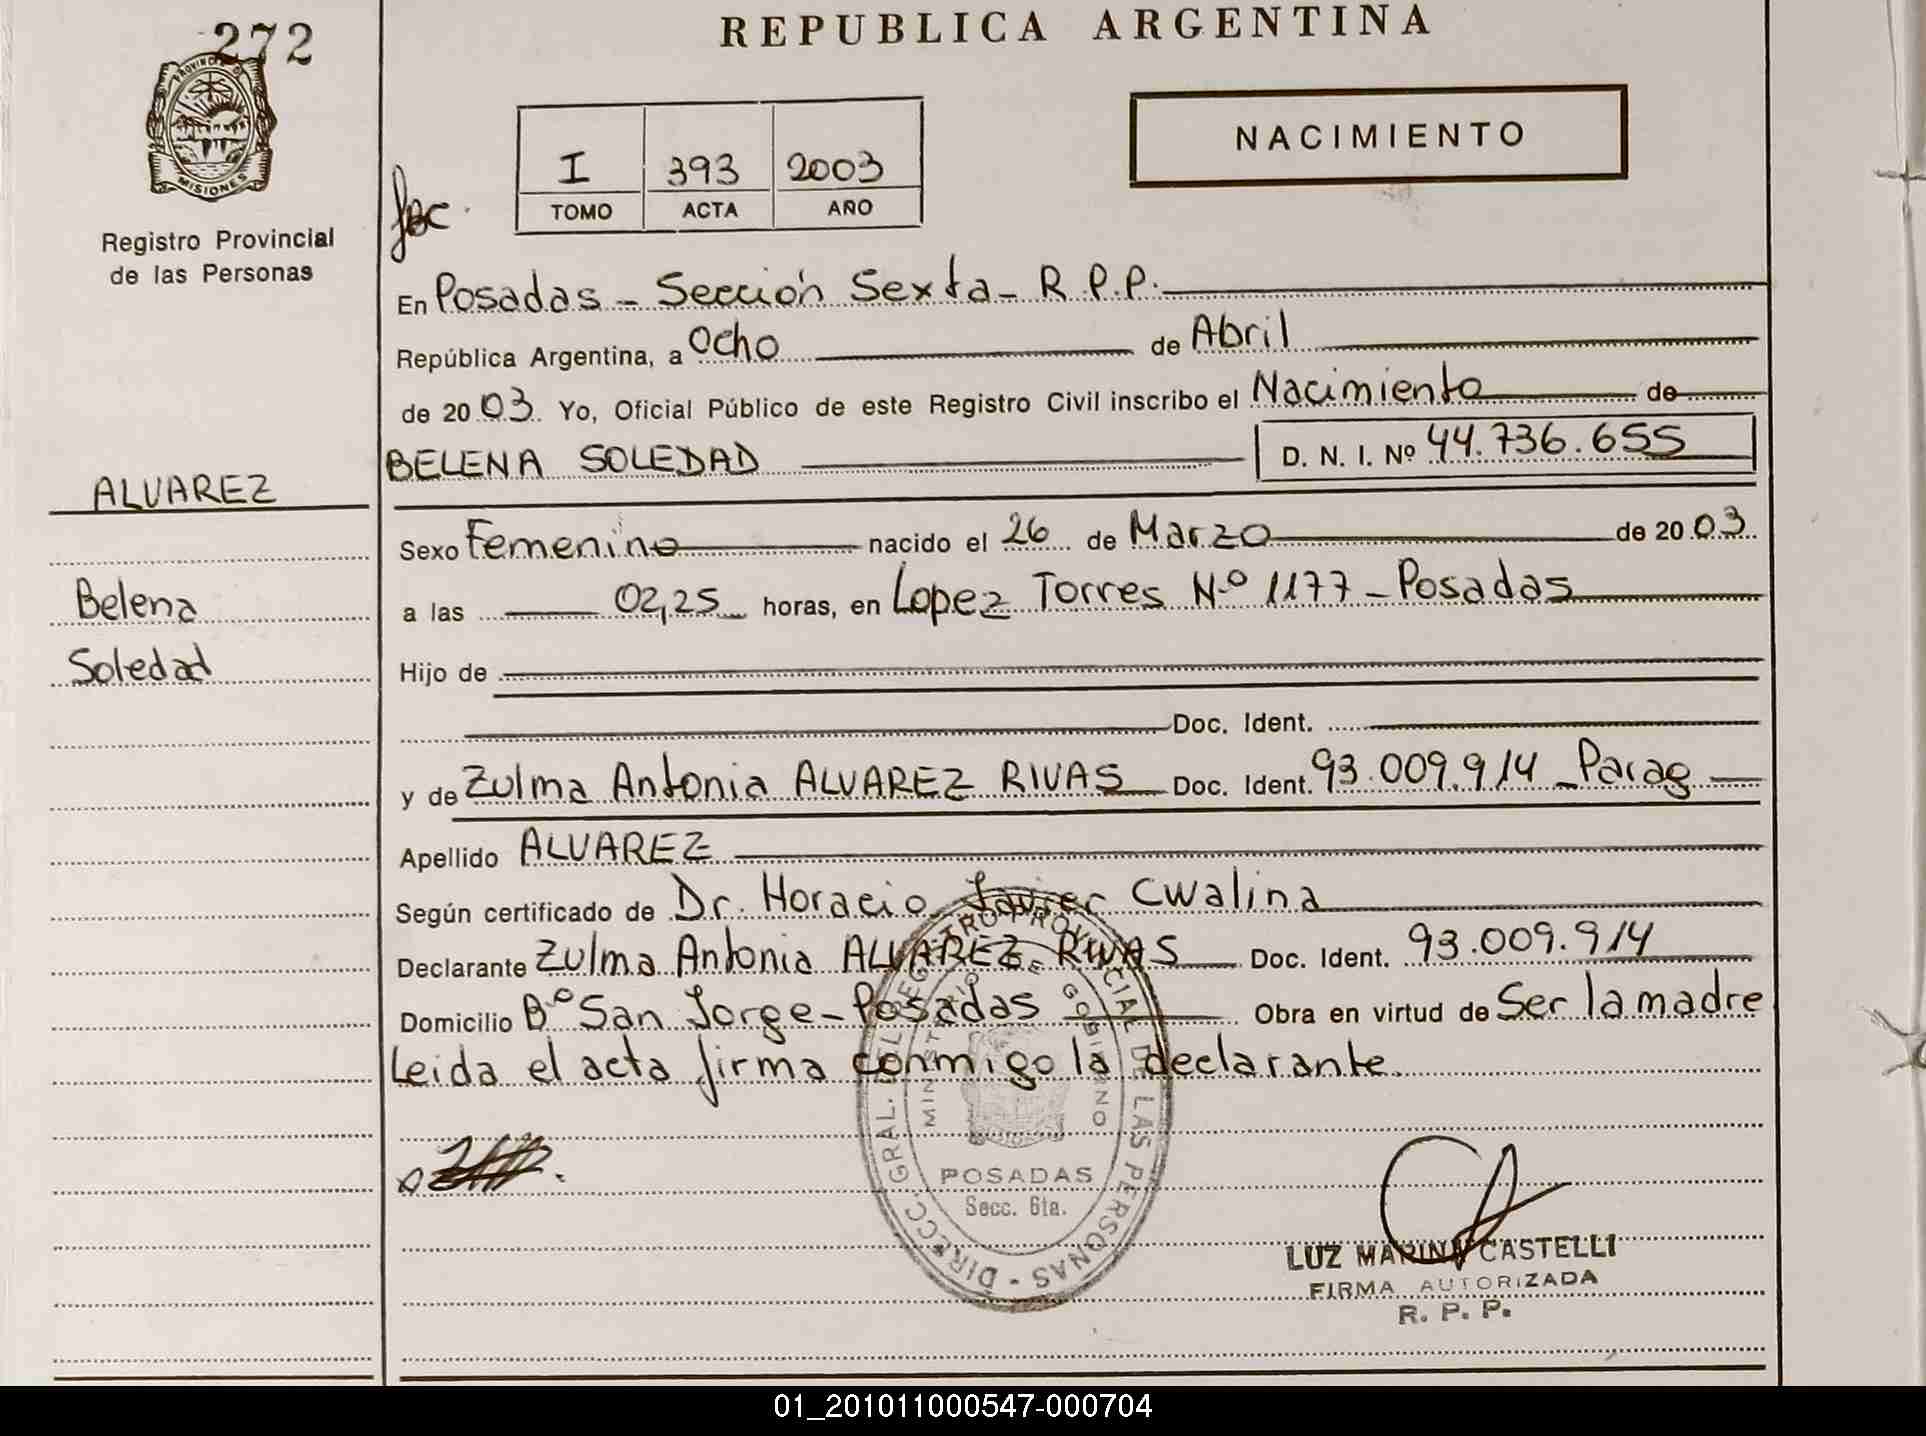 272
REPUBLICA ARGENTINA
PROVINCIA DE
MISIONES
Registro Provincial
de las Personas
NACIMIENTO
I 393 2003
TOMO ACTA AÑO
En Posadas - Sección Sexta - R.P.P.
República Argentina, a Ocho de Abril
de 2003. Yo, Oficial Público de este Registro Civil inscribo el Nacimiento de
BELENA SOLEDAD D. N. I. Nº 44.736.655
ALVAREZ
Sexo Femenino nacido el 26 de Marzo de 2003.
Belena
a las 02,25 horas, en Lopez Torres Nº 1177 - Posadas
Soledad
Hijo de
Doc. Ident.
y de Zulma Antonia ALVAREZ RIVAS Doc. Ident. 93.009.914 - Parag
Apellido ALVAREZ
Según certificado de Dr. Horacio Javier Cwalina
Declarante Zulma Antonia ALVAREZ RIVAS Doc. Ident. 93.009.914
Domicilio Bº San Jorge - Posadas Obra en virtud de Ser la madre
Leida el acta firma conmigo la declarante.
DIRECC. GRAL. DEL REGISTRO PROVINCIAL DE LAS PERSONAS
MINISTERIO DE GOBIERNO
POSADAS
Secc. 6ta.
LUZ MARINA CASTELLI
FIRMA AUTORIZADA
R. P. P.
01_201011000547-000704